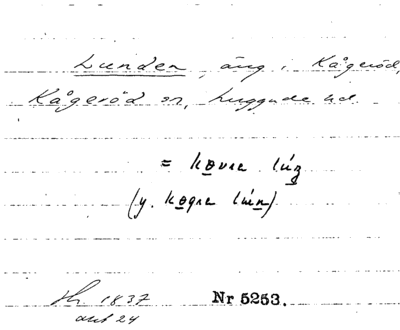 Lunden, äng i Kågeröd,
Kågeröd sn, Luggude hd.
= kovra lúŋ
(y. kogra lún)
1837
akt 24
Nr 5253.